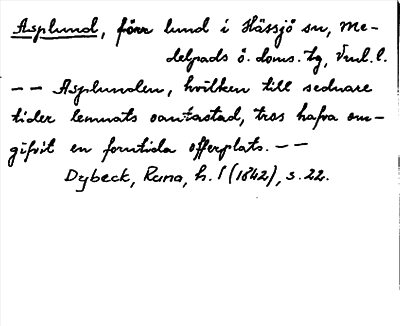 Asplund, förr lund i Hässjö sn, Me-
delpads ö. doms. tg, Vnl. l.
-- Asplunden, hvilken till sednare
tider lemnats oantastad, tros hafva om-
gifvit en forntida offerplats. --
Dybeck, Runa, h. 1 (1842), s. 22.